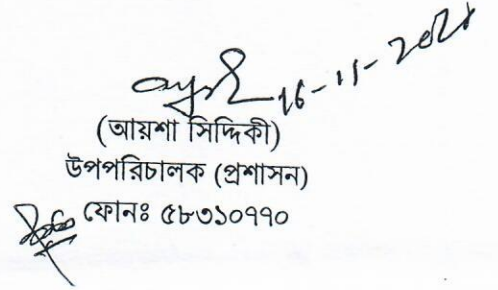 16-11-2021
(আয়শা সিদ্দিকী)
উপপরিচালক (প্রশাসন)
ফোনঃ ৫৮৩১০৭৭০